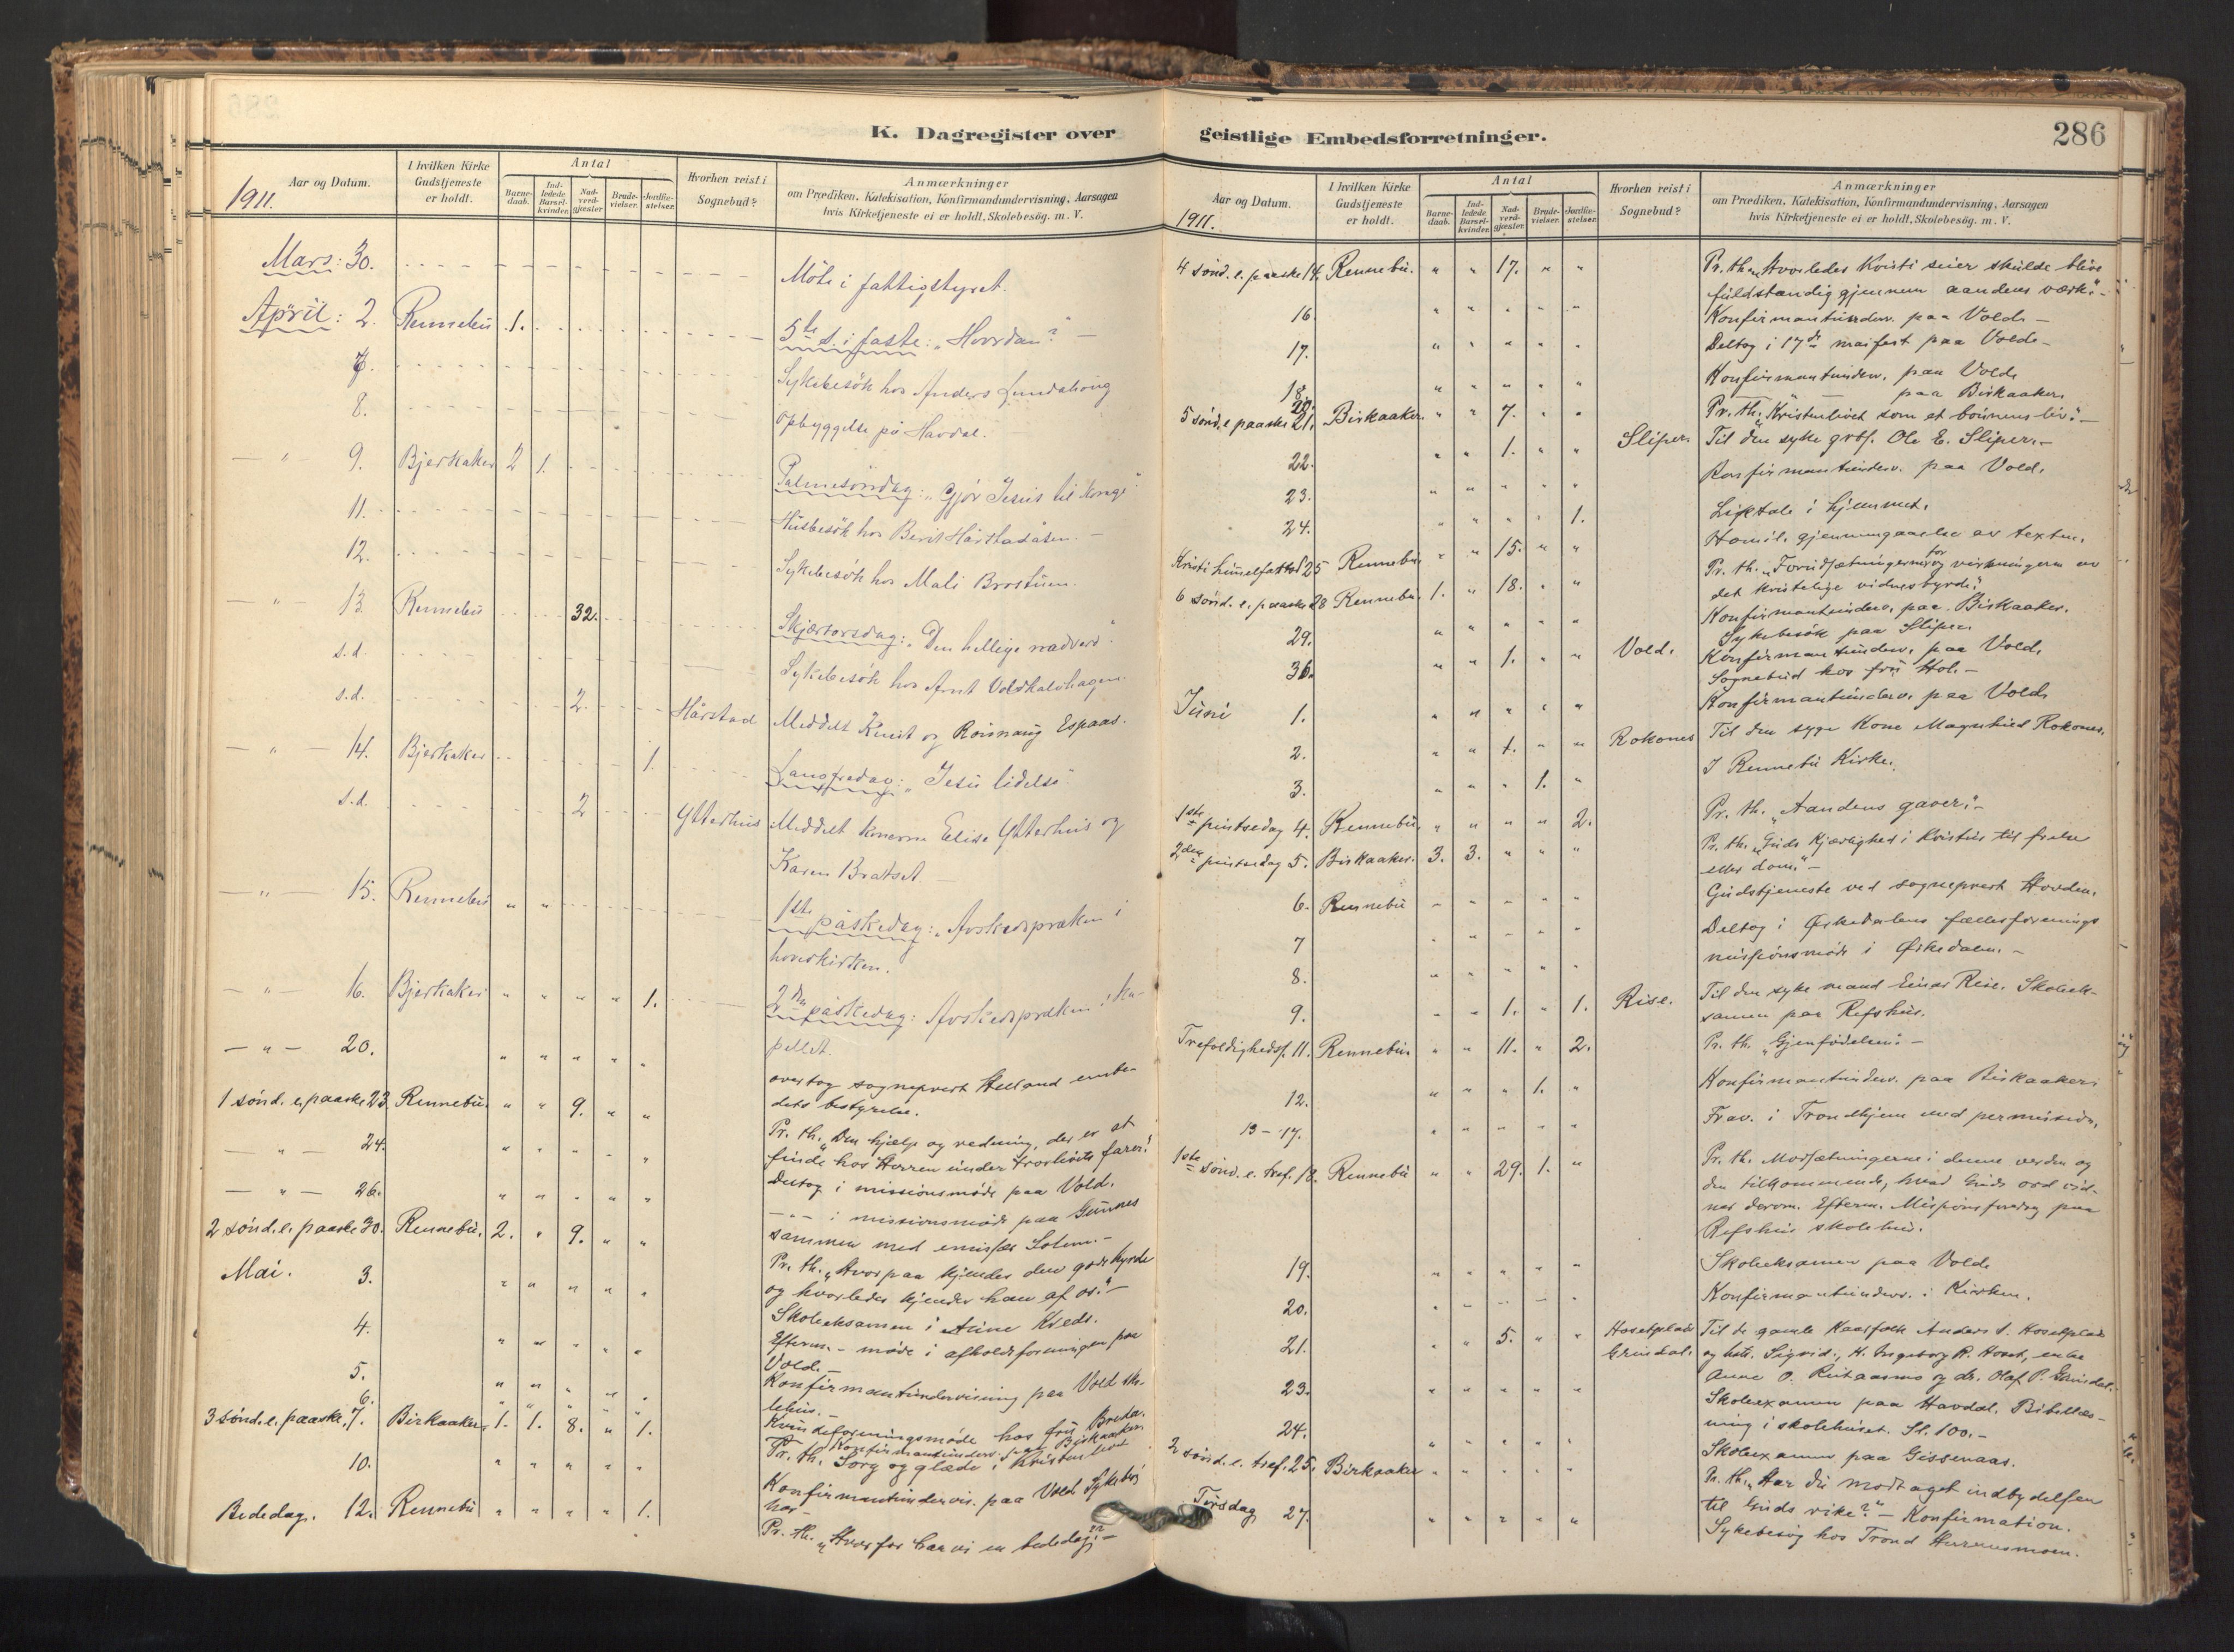 K. Dagregister over
1911.
Aar og Datum.
I hvilken Kirke Gudstjeneste er holdt.
Antal
Barnedaab.
Indledede Barselkvinder
Nadverdgjæster
Brudevielser.
Jordfæstelser.
Hvorhen reist i Sognebud?
Anmærkninger
om Prædiken, Katekisation, Konfirmandundervisning, Aarsagen
hvis Kirketjeneste ei er holdt, Skolebesög. m. V.
Mars: 30. Möte i fattigstyret.
April: 2. Rennebu 1. 5te s. i faste: "Hvordan?" —
7. Sykebesök hos Anders
8. Opbyggelse på Havdal.
— " — 9. Bjerkaker 2 1. Palmesöndag: "Gjör Jesus til konge".
11. Husbesök hos Berit —
12. Sykebesök hos Mali Brostuen.
— " — 13. Rennebu 32. Skjærtorsdag: "Den hellige nadverd".
s.d. Sykebesök hos Arnt
s.d. 2. Hårstad Meddelt og Rönnaug Espaas.
— " — 14. Bjerkaker 1. Langfredag: "Jesu lidelse"
s.d. 2 Ytterhus Meddelt konerne Elise Ytterhus og
Karen Bratset —
— " — 15. Rennebu " " 1ste påskedag: Avskedspræken i
hovedkirken.
— " — 16. Bjerkaker " " " " 1. 2den påskedag: Avskedspræken i ka-
pellet.
— " — 20. " " " " " overtog sogneprest Helland embe-
dets bestyrelse.
1 sönd. e. paaske 23. Rennebu. " " 9. " " Pr. th. "Den hjælp og redning, der er at
finde hos Herren under troslivets farer."
— " — 24. " " " " " Deltog i missionsmöde paa Vold.
— " — 26. " " " " " — " — i missionsmöde paa Gunnes
sammen med emissær Solem. —
2 sönd. e. paaske 30. Rennebu. 2. " 9. " " Pr. th. "Hvorpaa kjendes den gode hyrde
og hvorledes kjender han af os." —
Mai. 3. " " " " " Skoleeksamen i Aune Kreds.
4. " " " " " Efterm. – möde i afholdsforeningen paa
Vold. —
5. " " " " " Konfirmantundervisning paa Vold sko-
lehus. —
6. " " " " " Kvindeforeningsmöde hos fru Breda.
Konfirmantunderv. paa Birkaaker.
3 sönd. e. paaske. 7. Birkaaker. 1. 1. 8. " 1. Pr. th. Sorg og glæde i Kristenlivet
10. " " " " " Konfirmantundervis. paa Vold
Bededag. 12. Rennebu " " " " 1. Pr. th. "Hvorfor har vi en bededag?" —
geistlige Embedsforretninger.
286
1911.
Aar og Datum.
I hvilken Kirke Gudstjeneste er holdt.
Antal
Barnedaab.
Indledede Barselkvinder
Nadverdgjæster
Brudevielser.
Jordfæstelser.
Hvorhen reist i Sognebud?
Anmærkninger
om Prædiken, Katekisation, Konfirmandundervisning, Aarsagen
hvis Kirketjeneste ei er holdt, Skolebesög. m. V.
4 sönd. e. paaske 14. Rennebu. " " 17. " " Pr. th. "Hvorledes Kristi seier skulde blive
fuldstændig gjennem aandens værk." —
16. " " " " " Konfirmantunderv. paa Vold. —
17. " " " " " Deltog i 17de maifest paa Vold. —
18. " " " " " Konfirmantunderv. paa Vold.
20. " — paa Birkaaker.
5 sönd. e. paaske 21. Birkaaker. " " 7. " " Pr. th. "Kristenlivet som et bönnens liv." —
22. " " 1. " " Sliper. Til den syke grbf. Ole E. Sliper. —
23. " " " " " Konfirmantunderv. paa Vold.
24. " " " " 1. Liktale i hjemmet.
Kristi himmelfartsd. 25 Rennebu " " 15. " " Homil. gjennemgaaelse av texten.
6 sönd. e. paaske 28 Rennebu. 1. " 18. " " Pr. th. "Forudsætningerne for og virkningerne av
det kristelige vidnesbyrd."
29. " " " " " Konfirmantunderv. paa Birkaaker.
Sykebesök paa Sliper.
30. " " 1. " " Vold. Konfirmantunderv. paa Vold.
Sognebud hos fru Hol. —
Juni 1. " " " " " Konfirmantunderv. paa Vold.
2. " " 1. " " Rokones Til den syge Kone Magnhild Rokones.
3. " " " 1. " I Rennebu Kirke.
1ste pintsedag 4. Rennebu. " " " " 2. Pr. th. "Aandens gaver." —
2den pintsedag 5. Birkaaker. 3. 3. " " " Pr. th. "Guds kjærlighed i Kristus til frelse
eller dom." —
6. Rennebu " " " " " Gudstjeneste ved sogneprest Hovden.
7 " " " " " Deltog i Orkedalens fællesforenings
8. " " " " " missionsmöde i Orkedalen. —
9. " " 1. " 1. Rise. Til den syke mand Einar Rise. Skoleek-
samen paa Refshus.
Trefoldighedsf. 11. Rennebu. " " 11. " 2. Pr. th. "Gjenfödelsen." —
12. " " " 1. " Konfirmantunderv. paa Birkaaker.
13 – 17. " " " " " Frav. i Trondhjem med permission.
1ste sönd. e. tref. 18. Rennebu " " 29. 1. " Pr. th. Modsætningerne i denne verden og
den tilkommende, hvad Guds ord vid-
ner derom. Efterm. Missionsforedrag paa
Refshus skolehus.
19. " " " " " Skoleeksamen paa Vold.
20. " " " " " Konfirmantunderv. i Kirken.
21. " " 5. " " Hosetplads Grindal. Til de gamle Kaarfolk Anders S. Hosetplads
og hstr. Sigrid., H. Ingeborg R. Hoset, enke
Anne O. og do. Olaf P. Grindal.
23. " " " " " Skoleexamen paa Havdal. Bibellæs-
ning i skolehuset.
24. " " " " " Skoleexamen paa Gissenaas.
2 sönd. e. tref. 25. Birkaaker " " " " " Pr. th. "Har du modtaget indbydelsen
til Guds rike?" — Konfirmation.
Torsdag 27. " " " " " Sykebesög hos Trond